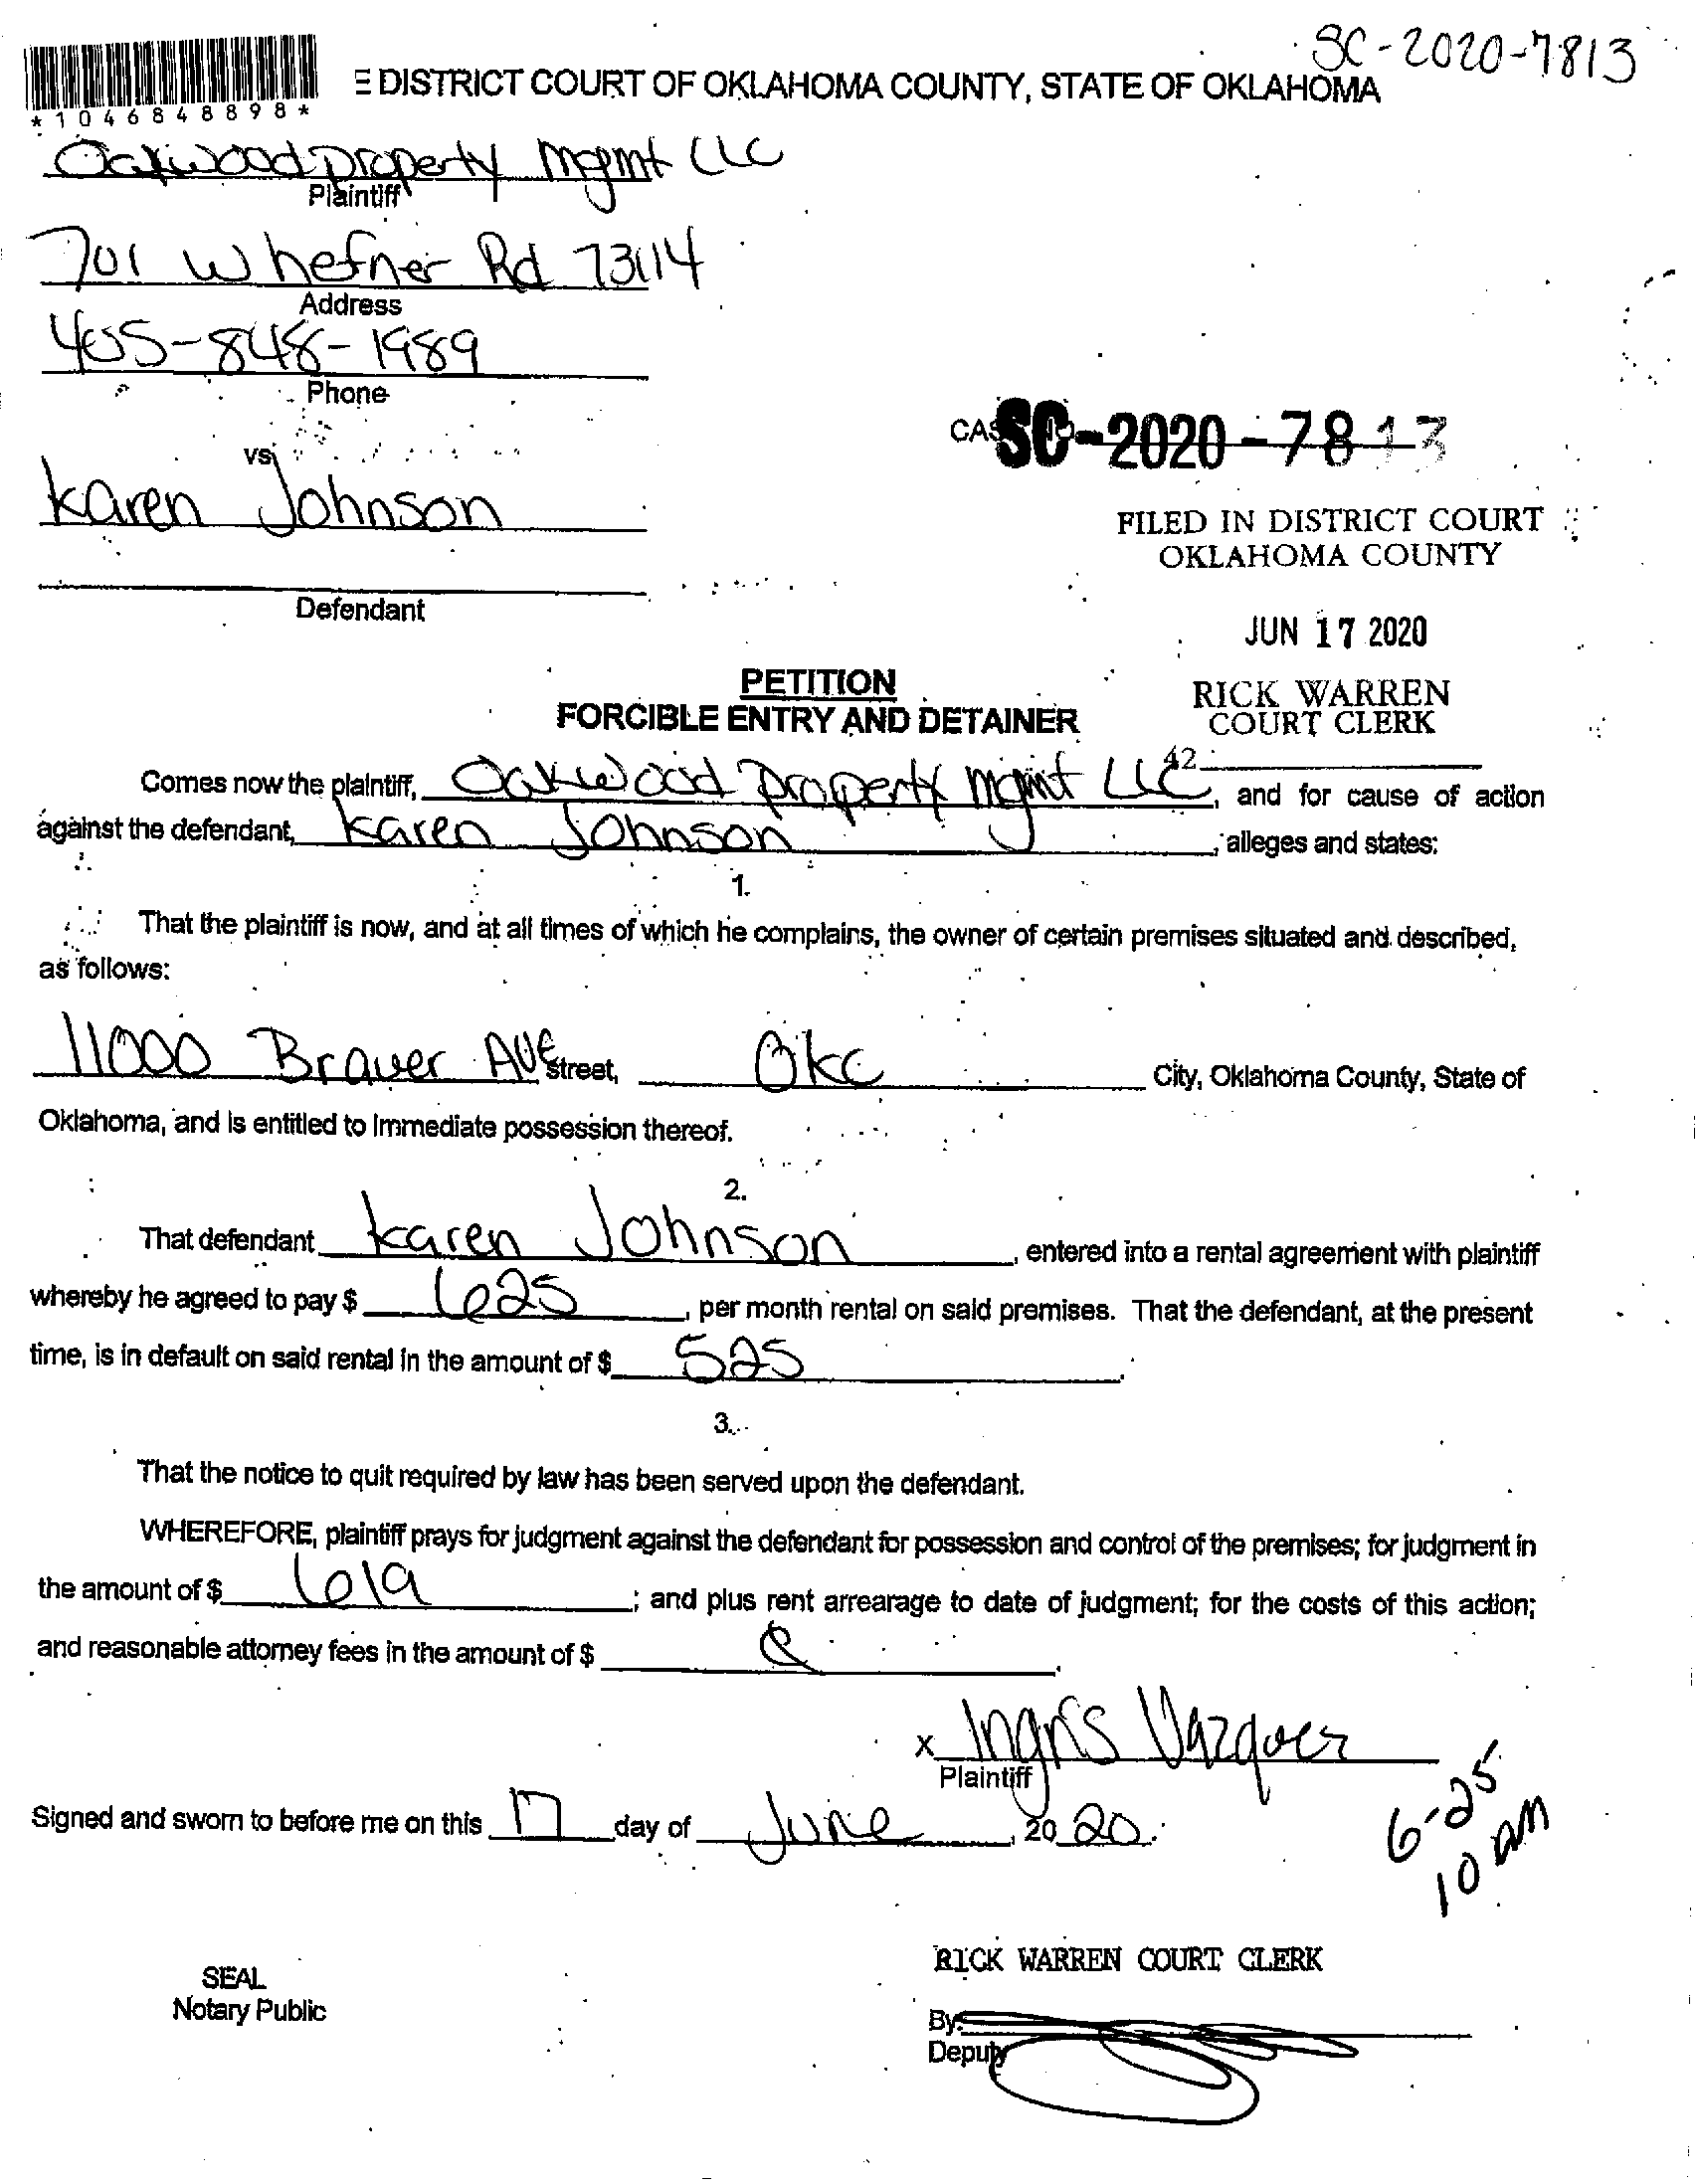 SC-2020-7813
E DISTRICT COURT OF OKLAHOMA COUNTY, STATE OF OKLAHOMA
*1046848898*
Oakwood Property Mgmt LLC
Plaintiff
701 W hefner Rd 73114
Address
405-848-1989
Phone
vs.
Karen Johnson
Defendant
CAS SC-2020-7813
FILED IN DISTRICT COURT
OKLAHOMA COUNTY
JUN 17 2020
RICK WARREN
COURT CLERK
42
PETITION
FORCIBLE ENTRY AND DETAINER
Comes now the plaintiff, Oakwood Property Mgmt LLC, and for cause of action
against the defendant, Karen Johnson, alleges and states:
1.
That the plaintiff is now, and at all times of which he complains, the owner of certain premises situated and described,
as follows:
11000 Brauer Ave Street, Okc City, Oklahoma County, State of
Oklahoma, and is entitled to immediate possession thereof.
2.
That defendant Karen Johnson, entered into a rental agreement with plaintiff
whereby he agreed to pay $ 625, per month rental on said premises. That the defendant, at the present
time, is in default on said rental in the amount of $ 525.
3.
That the notice to quit required by law has been served upon the defendant.
WHEREFORE, plaintiff prays for judgment against the defendant for possession and control of the premises; for judgment in
the amount of $ 619; and plus rent arrearage to date of judgment; for the costs of this action;
and reasonable attorney fees in the amount of $
x Ingris Vazquez
Plaintiff
Signed and sworn to before me on this 17 day of June, 2020.
6-25
10 am
RICK WARREN COURT CLERK
SEAL
Notary Public
By:
Deputy